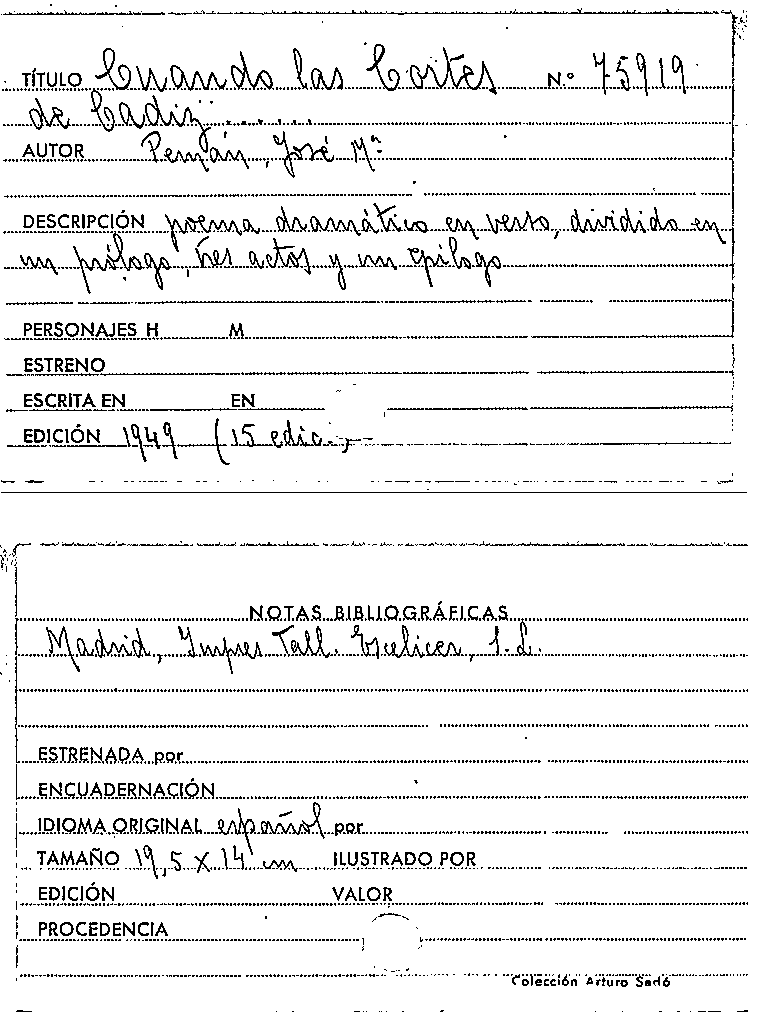 TÍTULO Cuando las Cortes Nº 75919
de Cadiz ......
AUTOR Pemán, José Mª
DESCRIPCIÓN poema dramático en verso, dividido en
un prólogo, tres actos y un epílogo
PERSONAJES H M
ESTRENO
ESCRITA EN EN
EDICIÓN 1949 (15 edic.)
NOTAS BIBLIOGRÁFICAS
Madrid, Impres Tall. Escelicer, S.L.
ESTRENADA por
ENCUADERNACIÓN
IDIOMA ORIGINAL español por
TAMAÑO 19,5 x 14 cm ILUSTRADO POR
EDICIÓN VALOR
PROCEDENCIA
Colección Arturo Sedó